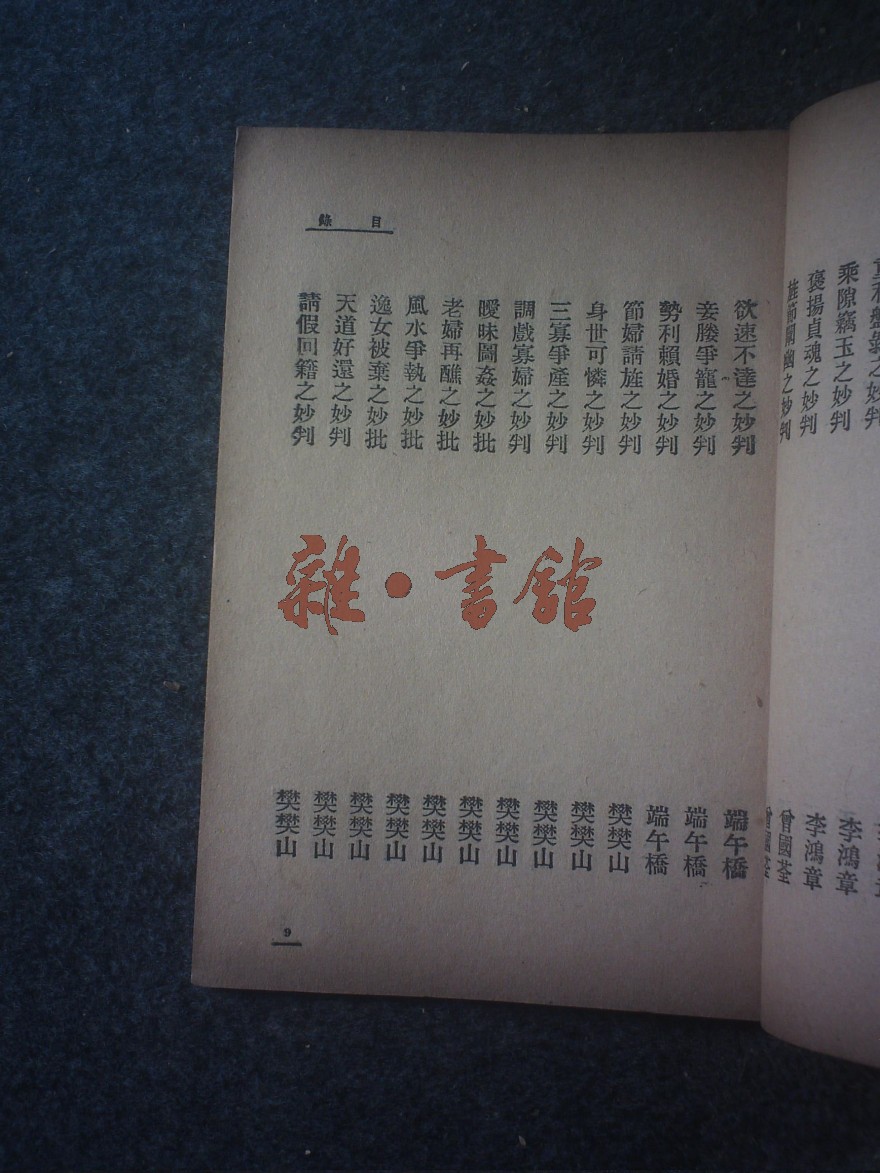 乘隙竊玉之妙判 李鴻章
褒揚貞魂之妙判 李鴻章
旌節闡幽之妙判 曾國荃
曾國荃
目錄
欲速不達之妙判 端午橋
妾媵爭寵之妙判 端午橋
勢利賴婚之妙判 端午橋
節婦請旌之妙判 樊樊山
身世可憐之妙判 樊樊山
三寡爭產之妙判 樊樊山
調戲寡婦之妙判 樊樊山
曖昧圖姦之妙批 樊樊山
老婦再醮之妙批 樊樊山
風水爭執之妙批 樊樊山
逸女被棄之妙批 樊樊山
天道好還之妙判 樊樊山
請假回籍之妙判 樊樊山
9
雜·書館